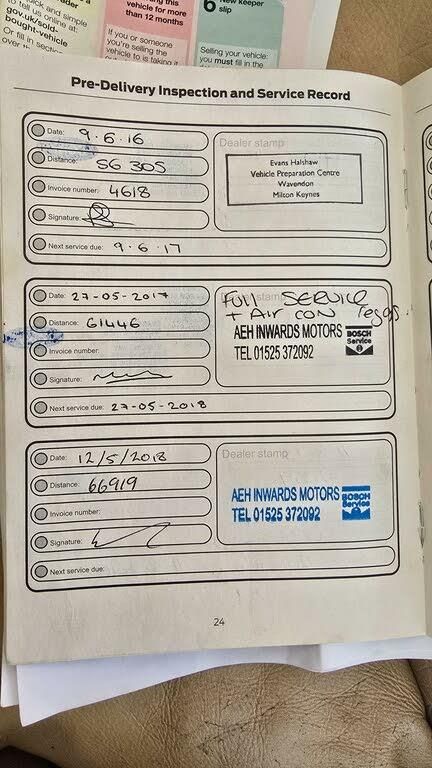 to tell us online at:
gov.uk/sold-
bought-vehicle
Or fill in section
vehicle for more
than 12 months
If you or someone
you're selling the
vehicle to is taking it
6 New keeper
slip
Selling your vehicle:
you must fill in the
Pre-Delivery Inspection and Service Record
Date: 9.6.16
Distance: 56 305
Invoice number: 4618
Signature:
Next service due: 9.6.17
Dealer stamp
Evans Halshaw
Vehicle Preparation Centre
Wavendon
Milton Keynes
Date: 27-05-2017
Distance: 61446
Invoice number:
Signature:
Next service due: 27-05-2018
FULL SERVICE
+ Air CON Regas.
AEH INWARDS MOTORS
TEL 01525 372092
BOSCH
Service
Date: 12/5/2018
Distance: 66919
Invoice number:
Signature:
Next service due:
Dealer stamp
AEH INWARDS MOTORS
TEL 01525 372092
BOSCH
Service
24